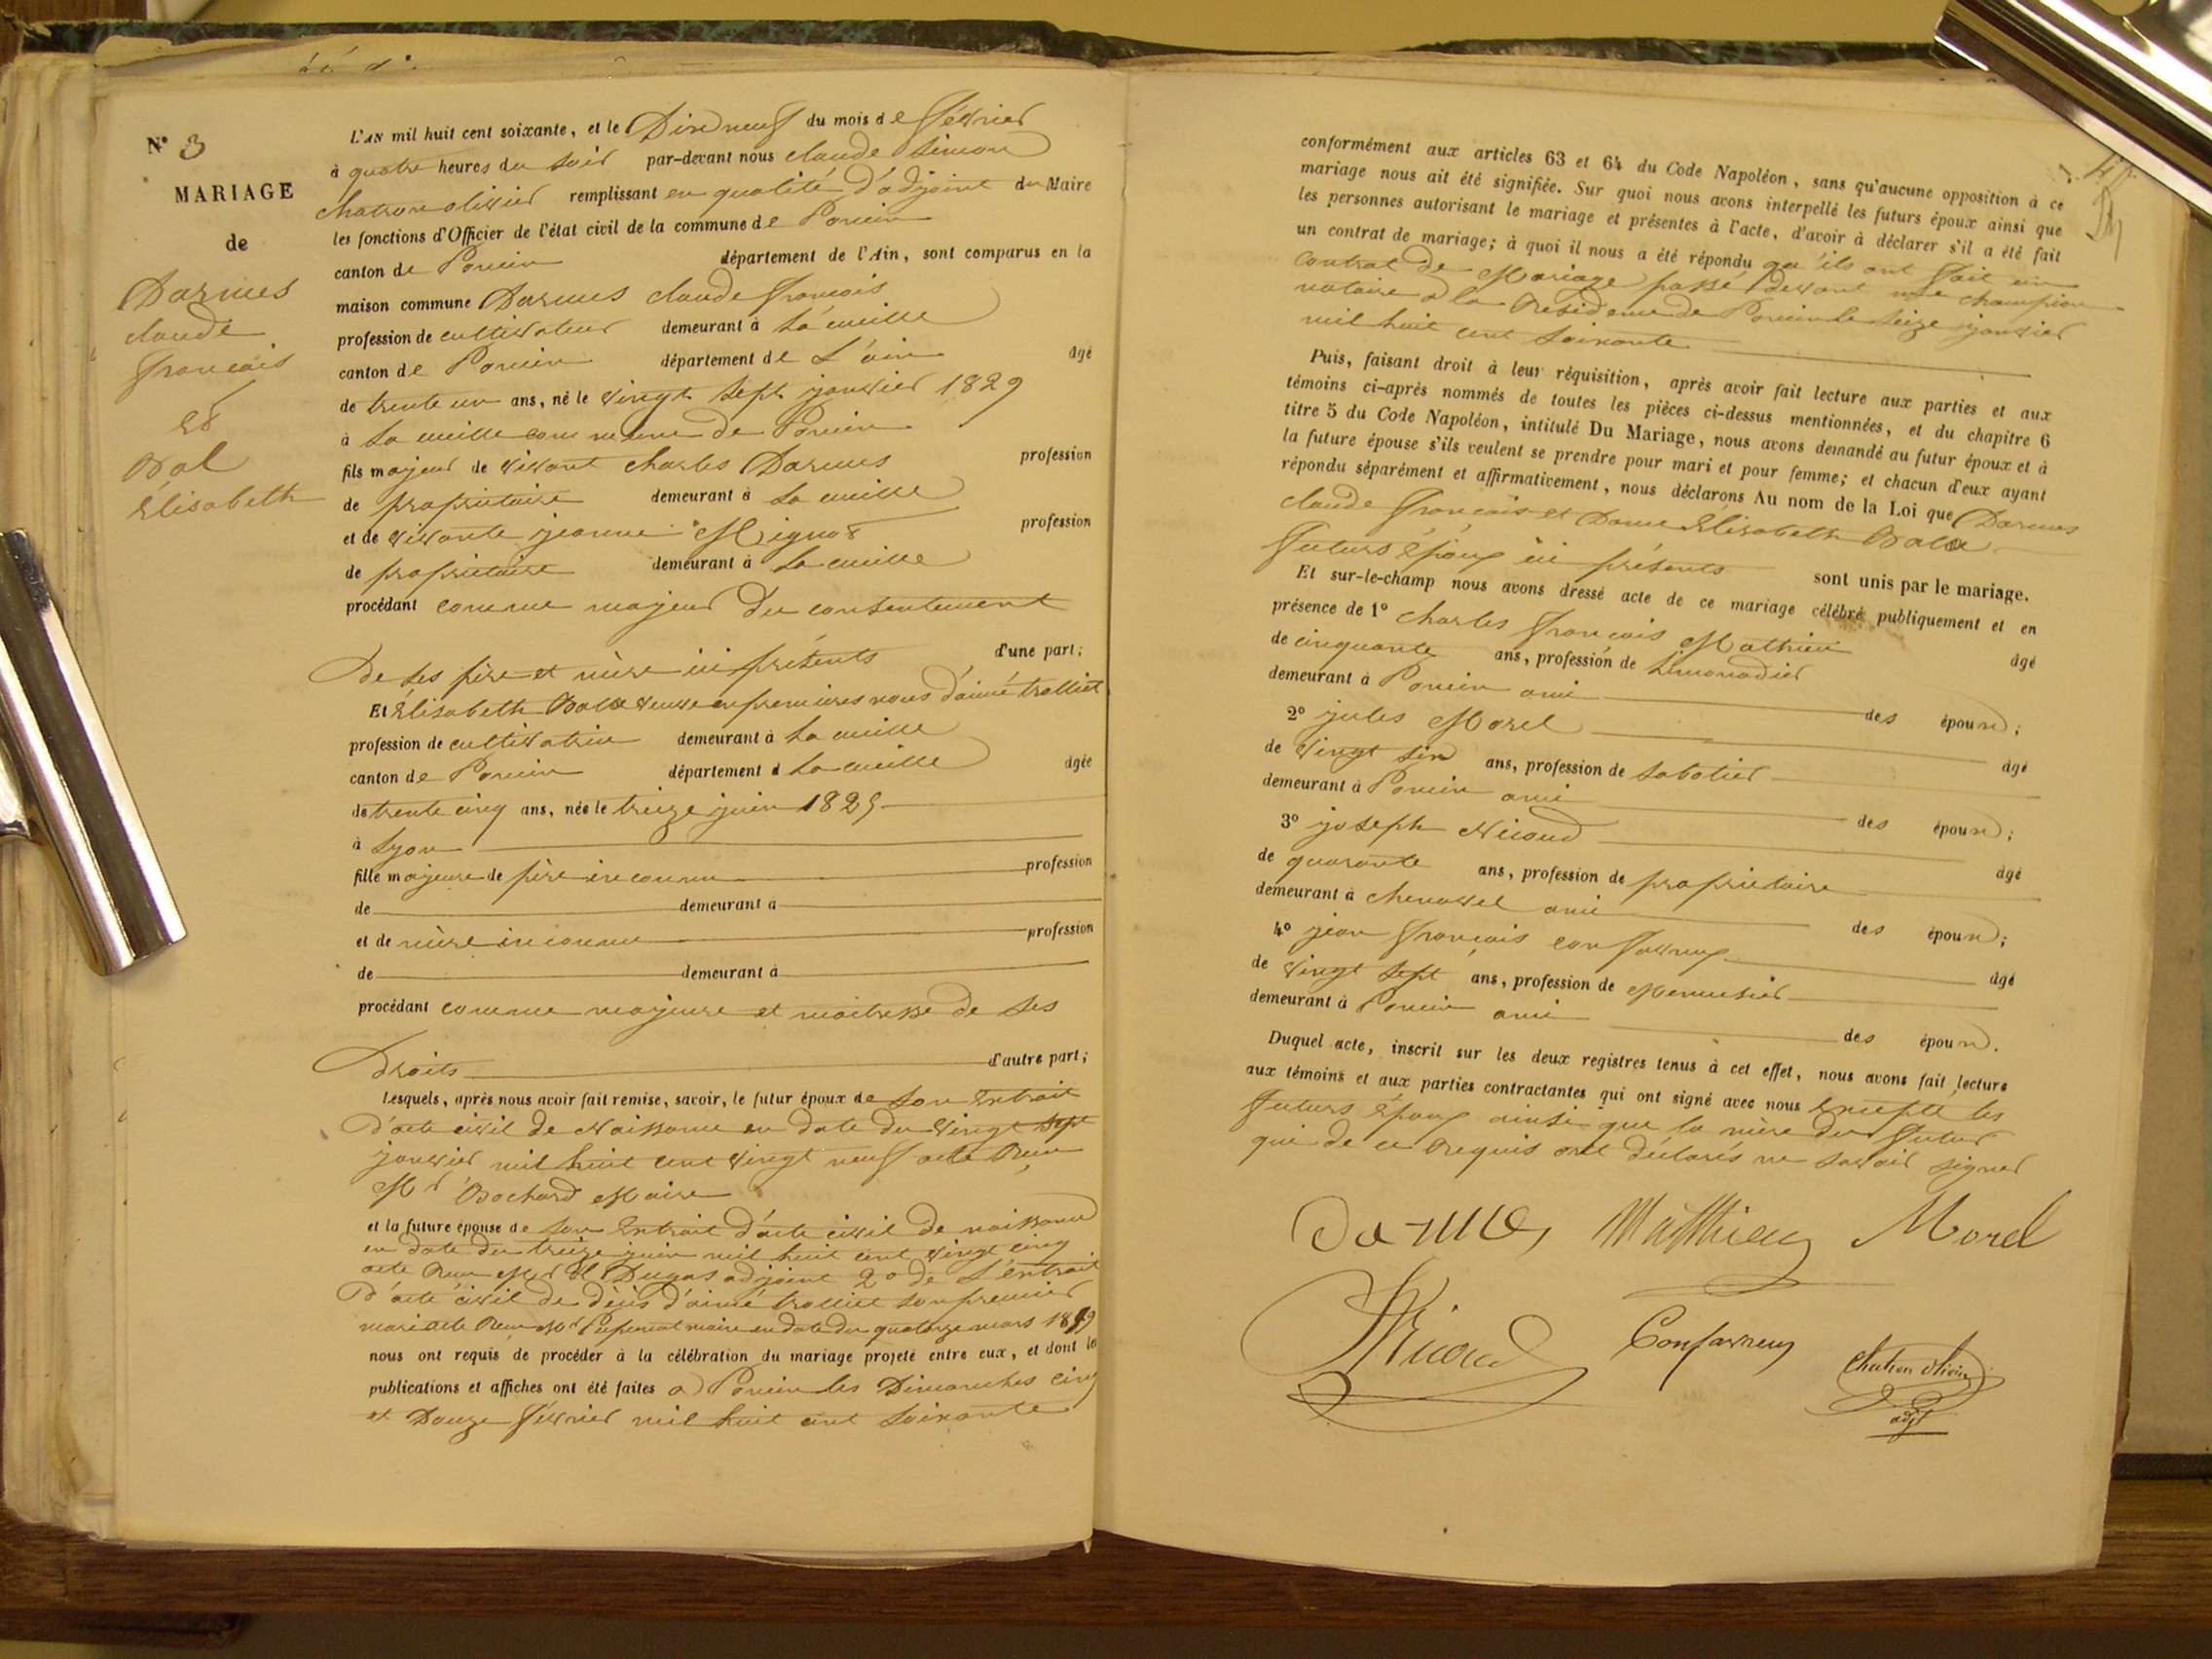 N° 3
MARIAGE
de
Darmes
claude
françois
et
Bal
Elisabeth
L'AN mil huit cent soixante, et le Dix neuf du mois de février
à quatre heures du soir par-devant nous claude simon
chatron olivier remplissant en qualité d'adjoint du Maire
les fonctions d'Officier de l'état civil de la commune de Poncin
canton de Poncin département de l'Ain, sont comparus en la
maison commune Darmes claude françois
profession de cultivateur demeurant à la cueille
canton de Poncin département de L'ain âgé
de trente un ans, né le vingt sept janvier 1829
à la cueille commune de Poncin
fils majeur de vivant charles Darmes profession
de propriétaire demeurant à la cueille
et de vivante jeanne Mignot profession
de propriétaire demeurant à la cueille
procédant comme majeur du consentement
De ses père et mère ici présents d'une part;
Et Elisabeth veuve en premières noces d'aimé trolliet
profession de cultivatrice demeurant à la cueille
canton de Poncin département d la cueille âgée
de trente cinq ans, née le treize juin 1825
à Lyon
fille majeure de père inconnu profession
de demeurant à
et de mère inconnue profession
de demeurant à
procédant comme majeure et maitresse de ses
Droits d'autre part;
Lesquels, après nous avoir fait remise, savoir, le futur époux de son Extrait
d'acte civil de Naissance en date du vingt sept
janvier mil huit cent vingt neuf acte Reçu
Mr Bochard Maire
et la future épouse de son Extrait d'acte civil de naissance
en date du treize juin mil huit cent vingt cinq
acte Reçu Dugas adjoint 2° de L'extrait
D'acte civil de décès d'aimé trolliet son premier
mari acte Reçu Mr maire en date du quatorze mars
nous ont requis de procéder à la célébration du mariage projeté entre eux, et dont les
publications et affiches ont été faites a Poncin les Dimanches cinq
et Douze février mil huit cent soixante
conformément aux articles 63 et 64 du Code Napoléon, sans qu'aucune opposition à ce
mariage nous ait été signifiée. Sur quoi nous avons interpellé les futurs époux ainsi que
les personnes autorisant le mariage et présentes à l'acte, d'avoir à déclarer s'il a été fait
un contrat de mariage; à quoi il nous a été répondu qu'ils ont fait un
contrat de Mariage passé devant me champion
notaire a la Residence de Poncin le seize janvier
mil huit cent soixante
Puis, faisant droit à leur réquisition, après avoir fait lecture aux parties et aux
témoins ci-après nommés de toutes les pièces ci-dessus mentionnées, et du chapitre 6
titre 5 du Code Napoléon, intitulé Du Mariage, nous avons demandé au futur époux et à
la future épouse s'ils veulent se prendre pour mari et pour femme; et chacun d'eux ayant
répondu séparément et affirmativement, nous déclarons Au nom de la Loi que Darmes
claude françois et Dame Elisabeth
futurs époux ici présents sont unis par le mariage.
Et sur-le-champ nous avons dressé acte de ce mariage célébré publiquement et en
présence de 1° charles françois Mathieu âgé
de cinquante ans, profession de limonadier
demeurant à Poncin ami des époux;
2° jules Morel âgé
de vingt six ans, profession de sabotier
demeurant à Poncin ami des époux;
3° joseph Nicoud âgé
de quarante ans, profession de propriétaire
demeurant à chenavel ami des époux;
4° jean françois confavreux âgé
de vingt sept ans, profession de Menuisier
demeurant à Poncin ami des époux.
Duquel acte, inscrit sur les deux registres tenus à cet effet, nous avons fait lecture
aux témoins et aux parties contractantes qui ont signé avec nous Excepté les
futurs époux ainsi que la mère du futur
qui de ce requis ont déclarés ne savoir signer
Darmes Matthieu Morel
Nicoud Confavreux Chatron olivier
adjt